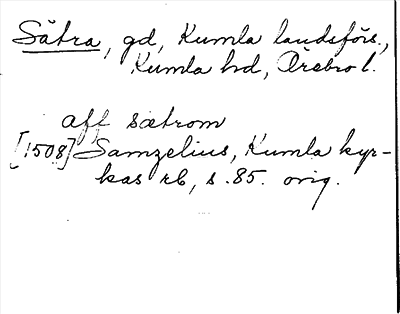 Sätra, gd, Kumla landsförs.,
Kumla hd, Örebro l.
aff sætrom
[1508] Samzelius, Kumla kyr-
kas rb, s. 85. orig.